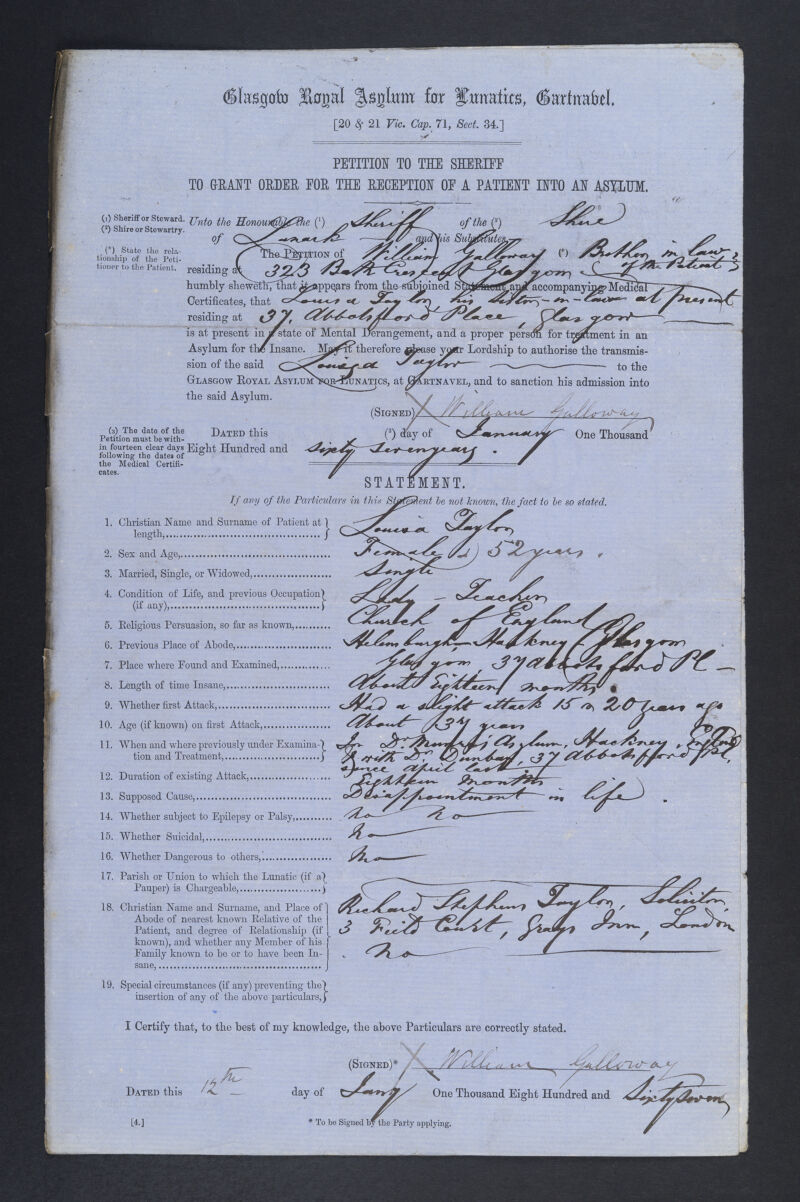 Glasgow Royal Asylum for Lunatics, Gartnavel.
[20 & 21 Vic. Cap. 71, Sect. 34.]
PETITION TO THE SHERIFF
TO GRANT ORDER FOR THE RECEPTION OF A PATIENT INTO AN ASYLUM.
(1) Sheriff or Steward.
(2) Shire or Stewartry.
Unto the Honourable the (1) Sheriff of the (2) Shire
of Lanark and his Substitutes
(*) State the relationship of the Petitioner to the Patient.
The Petition of William Galloway (*) Brother in law
of the Patient
residing at 323 Bath Crescent Glasgow
humbly sheweth, that it appears from the subjoined Statement and accompanying Medical
Certificates, that Louisa Taylor, his Sister-in-law at present
residing at 37, Abbotsford Place, Glasgow
is at present in a state of Mental Derangement, and a proper person for treatment in an
Asylum for the Insane. May it therefore please your Lordship to authorise the transmis-
sion of the said Louisa Taylor to the
Glasgow Royal Asylum for Lunatics, at Gartnavel, and to sanction his admission into
the said Asylum.
(Signed) X William Galloway
(3) The date of the Petition must be within fourteen clear days following the dates of the Medical Certificates.
Dated this (3) day of January One Thousand
Eight Hundred and sixty seven years.
STATEMENT.
If any of the Particulars in this Statement be not known, the fact to be so stated.
1. Christian Name and Surname of Patient at length, Louisa Taylor
2. Sex and Age, Female 52 years.
3. Married, Single, or Widowed, Single
4. Condition of Life, and previous Occupation (if any), Lady - Teacher
5. Religious Persuasion, so far as known, Church of England
6. Previous Place of Abode, Helensburgh - Hackney - Glasgow
7. Place where Found and Examined, Glasgow, 37 Abbotsford Pl -
8. Length of time Insane, About Eighteen months.
9. Whether first Attack, Had a slight attack 15 or 20 years ago
10. Age (if known) on first Attack, About 37 years
11. When and where previously under Examination and Treatment, In Dr. Asylum, Hackney, England
& with Dr. Dunbar, 37 Abbotsford Pl,
since April last
12. Duration of existing Attack, Eighteen months
13. Supposed Cause, Disappointment in life.
14. Whether subject to Epilepsy or Palsy, no no
15. Whether Suicidal, No
16. Whether Dangerous to others, No
17. Parish or Union to which the Lunatic (if a Pauper) is Chargeable,
18. Christian Name and Surname, and Place of Abode of nearest known Relative of the Patient, and degree of Relationship (if known), and whether any Member of his Family known to be or to have been Insane, Richard Stephens Taylor, Solicitor,
3 Field Court, Grays Inn, London
No
19. Special circumstances (if any) preventing the insertion of any of the above particulars,
I Certify that, to the best of my knowledge, the above Particulars are correctly stated.
(Signed)* X William Galloway
Dated this 12th day of Jany One Thousand Eight Hundred and Sixty Seven
[4.]
* To be Signed by the Party applying.